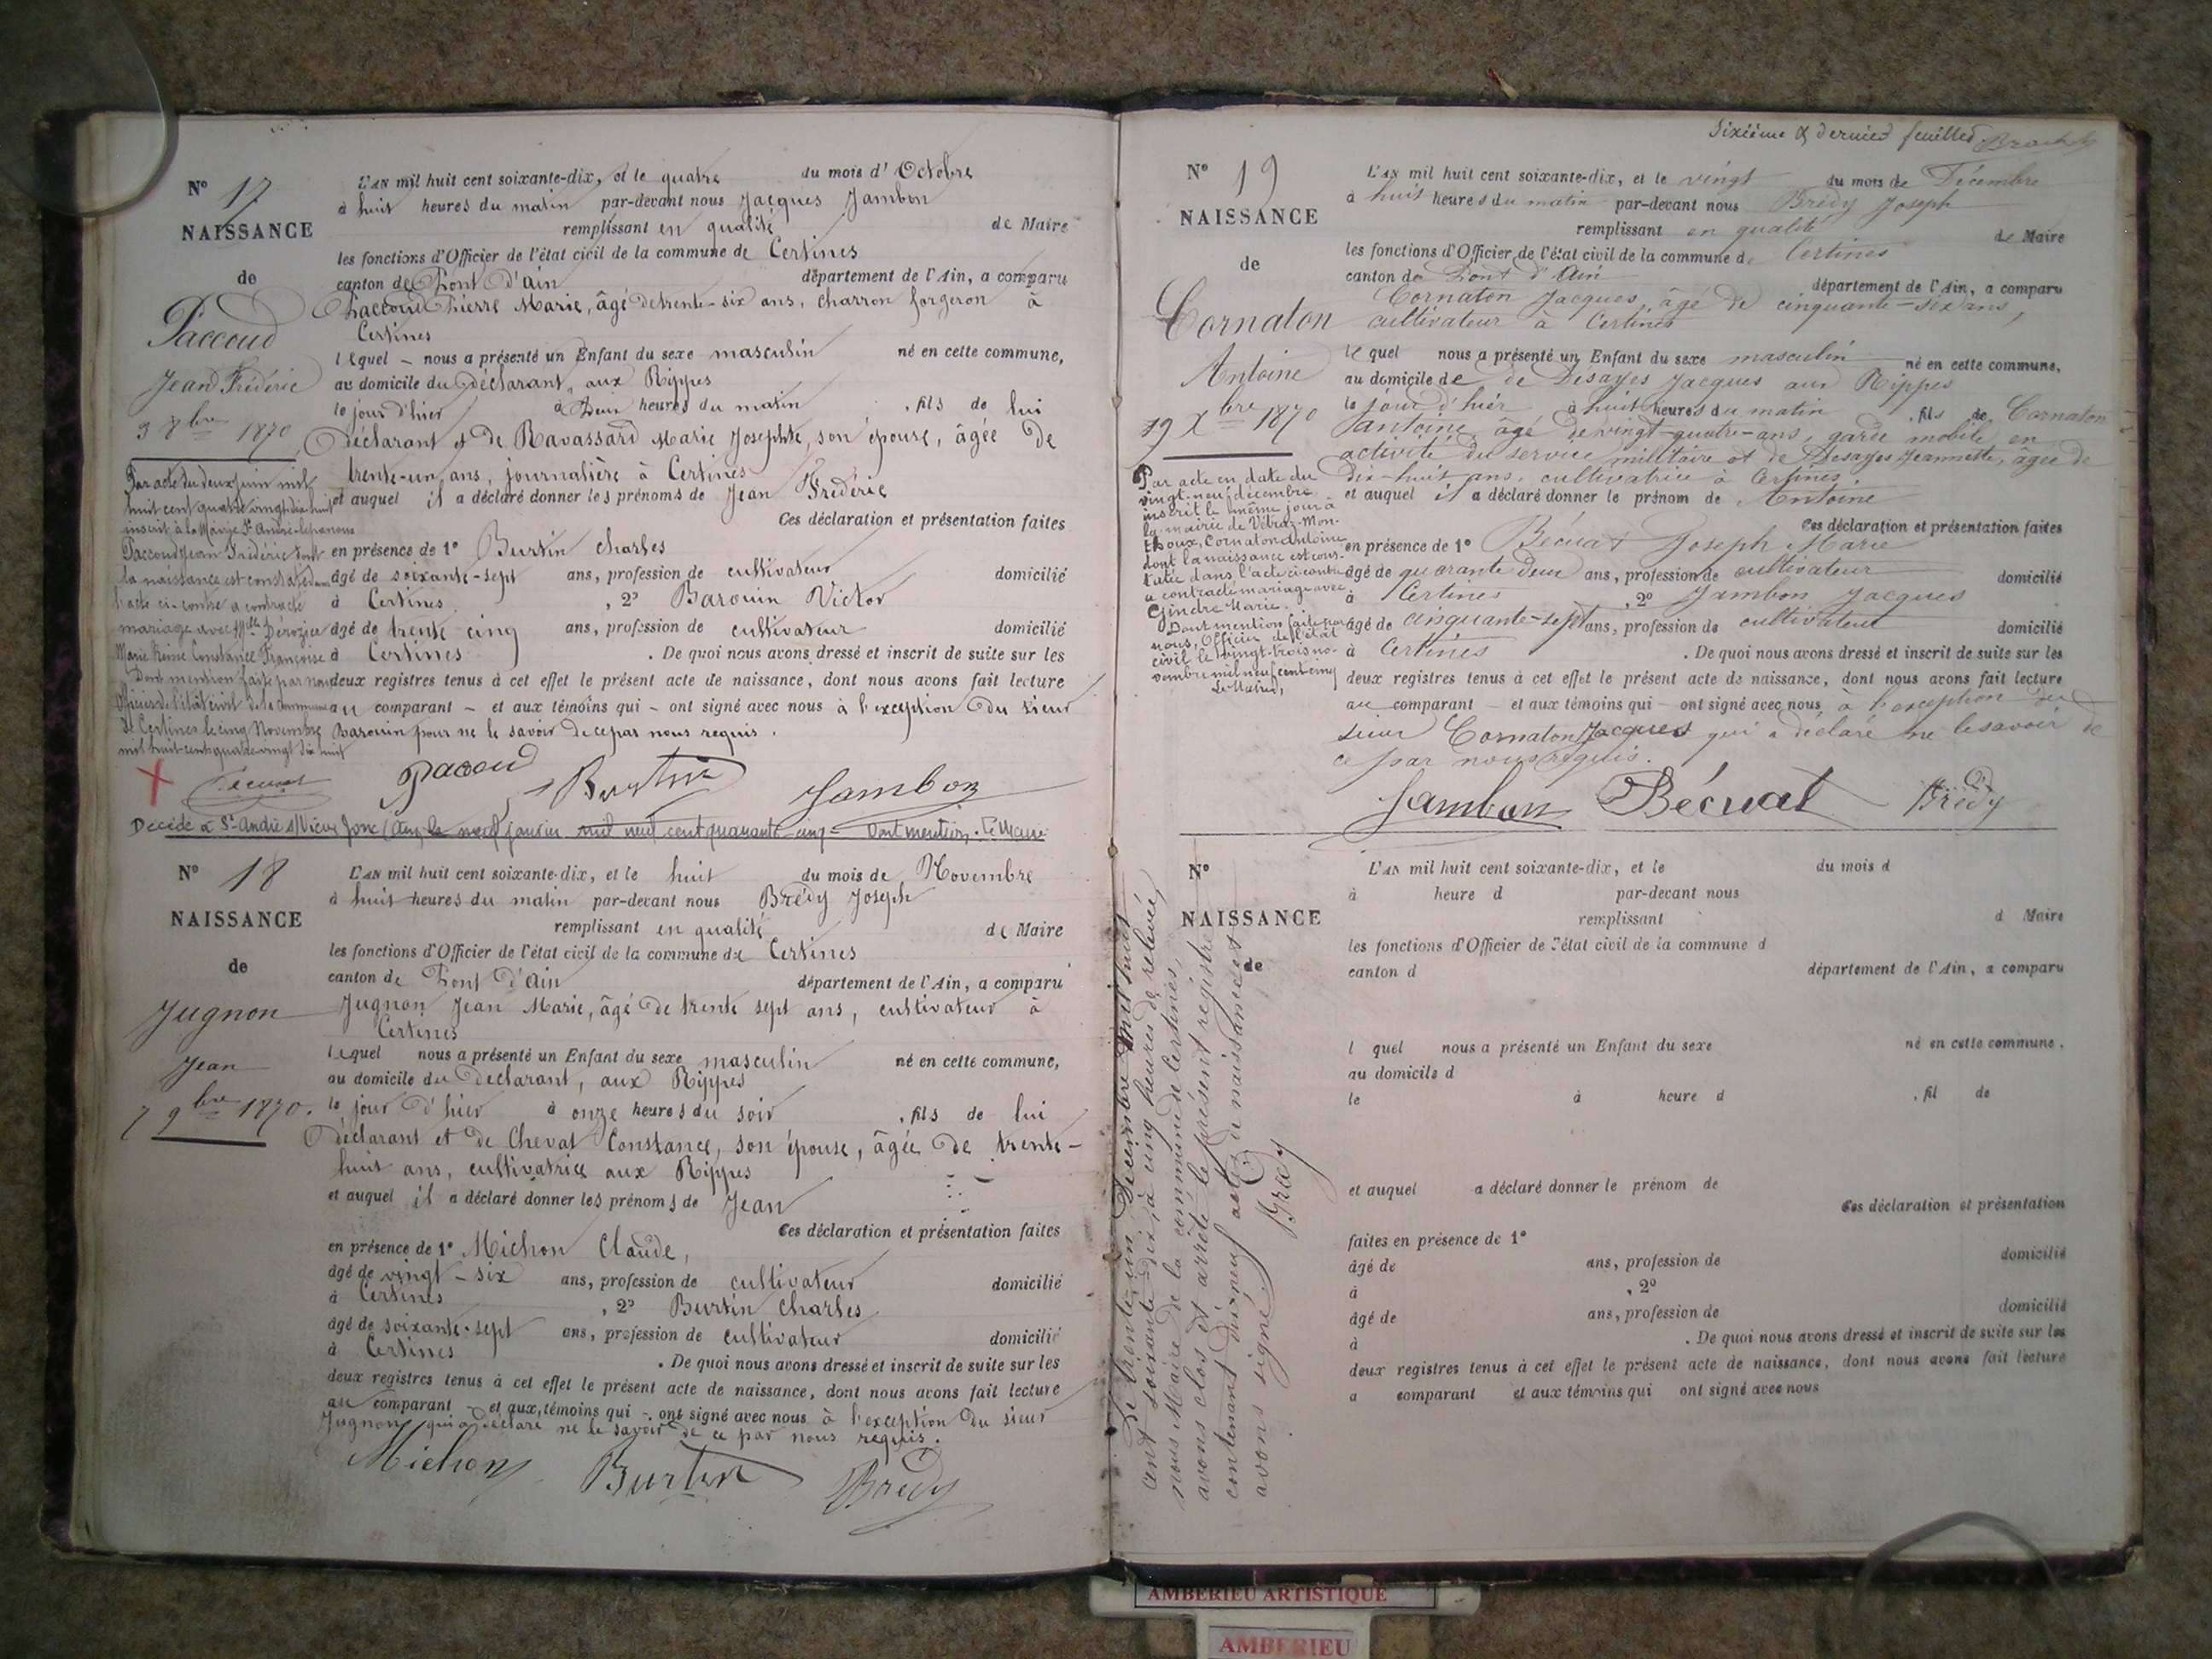 N° 17
NAISSANCE
de
Paccoud
Jean Frédéric
3 8bre 1870
L'AN mil huit cent soixante-dix, et le quatre du mois d'Octobre
à huit heures du matin par-devant nous Jacques Jambon
remplissant en qualité de Maire
les fonctions d'Officier de l'état civil de la commune de Certines
canton de Pont d'ain département de l'Ain, a comparu
Paccoud Pierre Marie, âgé de trente-six ans, charron forgeron à
Certines
lequel - nous a présenté un Enfant du sexe masculin né en cette commune,
au domicile du déclarant, aux Rippes
le jour d'hier à heures du matin , fils de lui
déclarant et de Ravassard Marie Josephte, son épouse, âgée de
trente-un ans, journalière à Certines
et auquel il a déclaré donner les prénoms de Jean Frédéric
Ces déclaration et présentation faites
en présence de 1° Burtin Charles
âgé de soixante-sept ans, profession de cultivateur domicilié
à Certines , 2° Barouin Victor
âgé de trente cinq ans, profession de cultivateur domicilié
à Certines . De quoi nous avons dressé et inscrit de suite sur les
deux registres tenus à cet effet le présent acte de naissance, dont nous avons fait lecture
au comparant - et aux témoins qui - ont signé avec nous à l'exception du sieur
Barouin pour ne le savoir de ce par nous requis.
Par acte du deux juin mil
huit cent quatre vingt dix huit
inscrit à la Mairie St André-le-panoux
Paccoud Jean Frédéric dont
la naissance est constatée dans
l'acte ci-contre a contracté
mariage avec Mlle Dérozier
Marie Reine Constance Françoise
Dont mention faite par nous
Officier de l'état civil de la commune
de Certines le cinq Novembre
mil huit cent quatre vingt dix huit
Bécuat
Pacoud Burtin Jambon
Décédé à St André s/Vieux Jonc (Ain) le neuf janvier mil neuf cent quarante cinq - Dont mention. Le Maire
N° 18
NAISSANCE
de
Jugnon
Jean
7 9bre 1870.
L'AN mil huit cent soixante-dix, et le huit du mois de Novembre
à huit heures du matin par-devant nous Brédy Joseph
remplissant en qualité de Maire
les fonctions d'Officier de l'état civil de la commune de Certines
canton de Pont d'ain département de l'Ain, a comparu
Jugnon Jean Marie, âgé de trente sept ans, cultivateur à
Certines
lequel nous a présenté un Enfant du sexe masculin né en cette commune,
au domicile du déclarant, aux Rippes
le jour d'hier à onze heures du soir , fils de lui
déclarant et de Chevat Constance, son épouse, âgée de trente-
huit ans, cultivatrice aux Rippes
et auquel il a déclaré donner les prénoms de Jean
Ces déclaration et présentation faites
en présence de 1° Michon Claude,
âgé de vingt-six ans, profession de cultivateur domicilié
à Certines , 2° Burtin Charles
âgé de soixante-sept ans, profession de cultivateur domicilié
à Certines . De quoi nous avons dressé et inscrit de suite sur les
deux registres tenus à cet effet le présent acte de naissance, dont nous avons fait lecture
au comparant - et aux témoins qui - ont signé avec nous à l'exception du sieur
Jugnon qui a déclaré ne le savoir de ce par nous requis.
Michon Burtin Brédy
Sixième & dernier feuillet
N° 19
NAISSANCE
de
Cornaton
Antoine
19 Xbre 1870
L'AN mil huit cent soixante-dix, et le vingt du mois de Décembre
à huit heures du matin par-devant nous Brédy Joseph
remplissant en qualité de Maire
les fonctions d'Officier de l'état civil de la commune de Certines
canton de Pont d'Ain département de l'Ain, a comparu
Cornaton Jacques, âgé de cinquante-six ans,
cultivateur à Certines
lequel nous a présenté un Enfant du sexe masculin né en cette commune,
au domicile de de Désayes Jacques aux Rippes
le jour d'hier à huit heures du matin , fils de Cornaton
antoine, âgé de vingt-quatre-ans, garde mobile en
activité du service militaire et de Desayes Jeannette, âgée de
dix-huit ans, cultivatrice à Certines
et auquel il a déclaré donner le prénom de Antoine
Ces déclaration et présentation faites
en présence de 1° Bécuat Joseph Marie
âgé de quarante deux ans, profession de cultivateur domicilié
à Certines , 2° Jambon Jacques
âgé de cinquante-sept ans, profession de cultivateur domicilié
à Certines . De quoi nous avons dressé et inscrit de suite sur les
deux registres tenus à cet effet le présent acte de naissance, dont nous avons fait lecture
au comparant - et aux témoins qui - ont signé avec nous à l'exception du
sieur Cornaton Jacques qui a déclaré ne le savoir de
ce par nous requis.
Par acte en date du
vingt-neuf décembre
inscrit le même jour à
la mairie de Vétraz-Mon-
thoux, Cornaton Antoine
dont la naissance est cons-
tatée dans l'acte ci-contre
a contracté mariage avec
Gindre Marie.
Dont mention faite par
nous, Officier de l'état
civil le vingt-trois no-
vembre mil neuf cent cinq
Le Maire,
Jambon Bécuat Brédy
N°
NAISSANCE
de
L'AN mil huit cent soixante-dix, et le du mois d
à heure d par-devant nous
remplissant d Maire
les fonctions d'Officier de l'état civil de la commune d
canton d département de l'Ain, a comparu
l quel nous a présenté un Enfant du sexe né en cette commune,
au domicile d
le à heure d , fil de
et auquel a déclaré donner le prénom de
Ces déclaration et présentation
faites en présence de 1°
âgé de ans, profession de domicilié
à , 2°
âgé de ans, profession de domicilié
à . De quoi nous avons dressé et inscrit de suite sur les
deux registres tenus à cet effet le présent acte de naissance, dont nous avons fait lecture
a comparant et aux témoins qui ont signé avec nous
Le trente-un Décembre mil huit
cent soixante-dix, à cinq heures de relevée,
nous Maire de la commune de Certines,
avons clos et arrêté le présent registre
contenant dix-neuf actes de naissance et
avons signé.
Brédy
AMBERIEU ARTISTIQUE
AMBERIEU